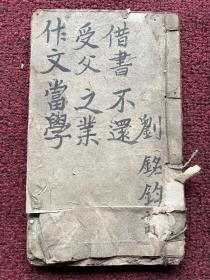 借書不還
受父之業
作文當學
劉銘鈞